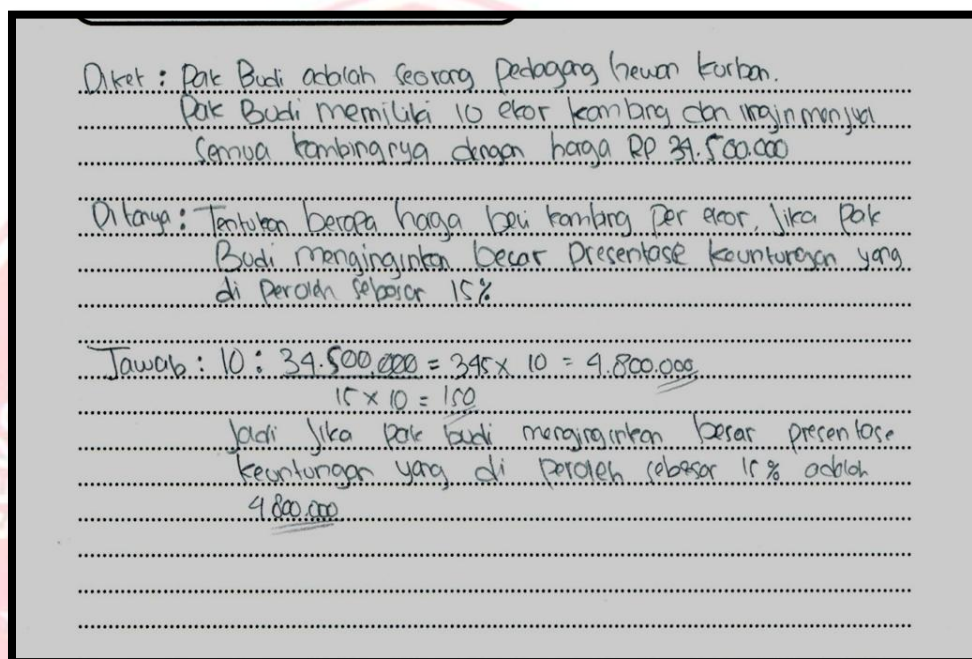 Diket : Pak Budi adalah seorang pedagang hewan kurban.
Pak Budi memiliki 10 ekor kambing dan ingin menjual
semua kambingnya dengan harga RP 34.500.000
Ditanya : Tentukan berapa harga beli kambing per ekor, Jika Pak
Budi menginginkan besar presentase keuntungan yang
di peroleh sebesar 15%
Jawab : 10 : 34.500.000 = 345 x 10 = 4.800.000
15 x 10 = 150
Jadi Jika Pak budi menginginkan besar presentase
keuntungan yang di peroleh sebesar 15% adalah
4.800.000